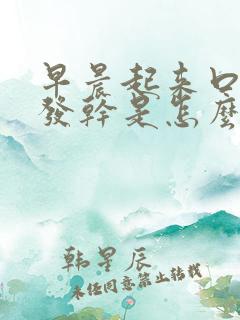 早晨起来口
發幹是怎麼
韩星辰
未经同意禁止转载